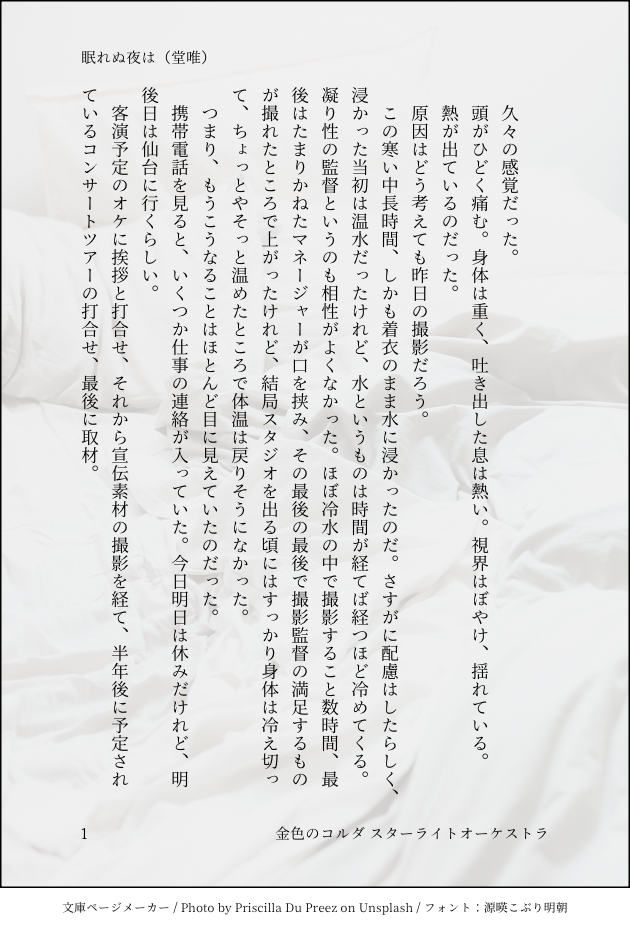 眠れぬ夜は（堂唯）
久々の感覚だった。
頭がひどく痛む。身体は重く、吐き出した息は熱い。視界はぼやけ、揺れている。
熱が出ているのだった。
原因はどう考えても昨日の撮影だろう。
この寒い中長時間、しかも着衣のまま水に浸かったのだ。さすがに配慮はしたらしく、
浸かった当初は温水だったけれど、水というものは時間が経てば経つほど冷めてくる。
凝り性の監督というのも相性がよくなかった。ほぼ冷水の中で撮影すること数時間、最
後はたまりかねたマネージャーが口を挟み、その最後の最後で撮影監督の満足するもの
が撮れたところで上がったけれど、結局スタジオを出る頃にはすっかり身体は冷え切っ
て、ちょっとやそっと温めたところで体温は戻りそうになかった。
つまり、もうこうなることはほとんど目に見えていたのだった。
携帯電話を見ると、いくつか仕事の連絡が入っていた。今日明日は休みだけれど、明
後日は仙台に行くらしい。
客演予定のオケに挨拶と打合せ、それから宣伝素材の撮影を経て、半年後に予定され
ているコンサートツアーの打合せ、最後に取材。
1
金色のコルダ スターライトオーケストラ
文庫ページメーカー / Photo by Priscilla Du Preez on Unsplash / フォント：源暎こぶり明朝